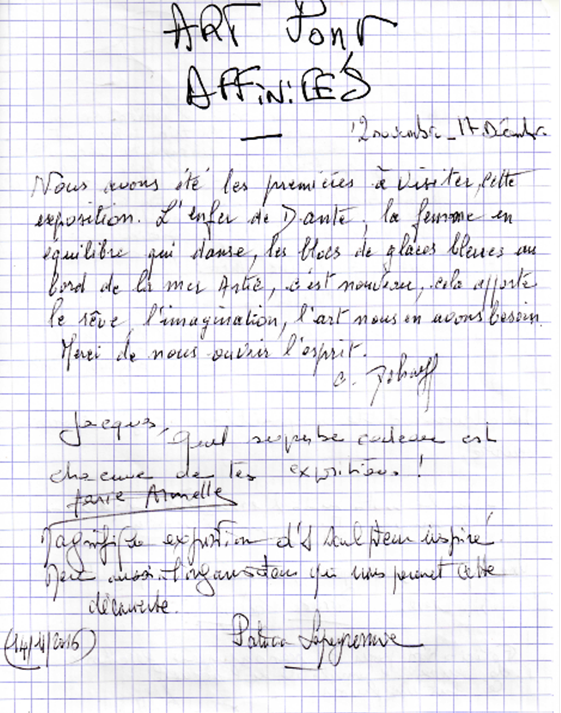 ART PONT
AFFINITÉS
12 novembre _ 17 Décembre
Nous avons été les premières à visiter cette
exposition. L'enfer de Dante, la femme en
équilibre qui danse, les blocs de glaces bleues au
bord de la mer Artic, c'est nouveau, cela apporte
le rêve, l'imagination, l'art nous en avons besoin.
Merci de nous ouvrir l'esprit.
C.
Jacques, quel superbe cadeau est
chacune de tes expositions !
Marie Armelle
Magnifique exposition d'1 sculpteur inspiré
Merci aussi à l'organisateur qui nous permet cette
découverte.
(14/11/2016)